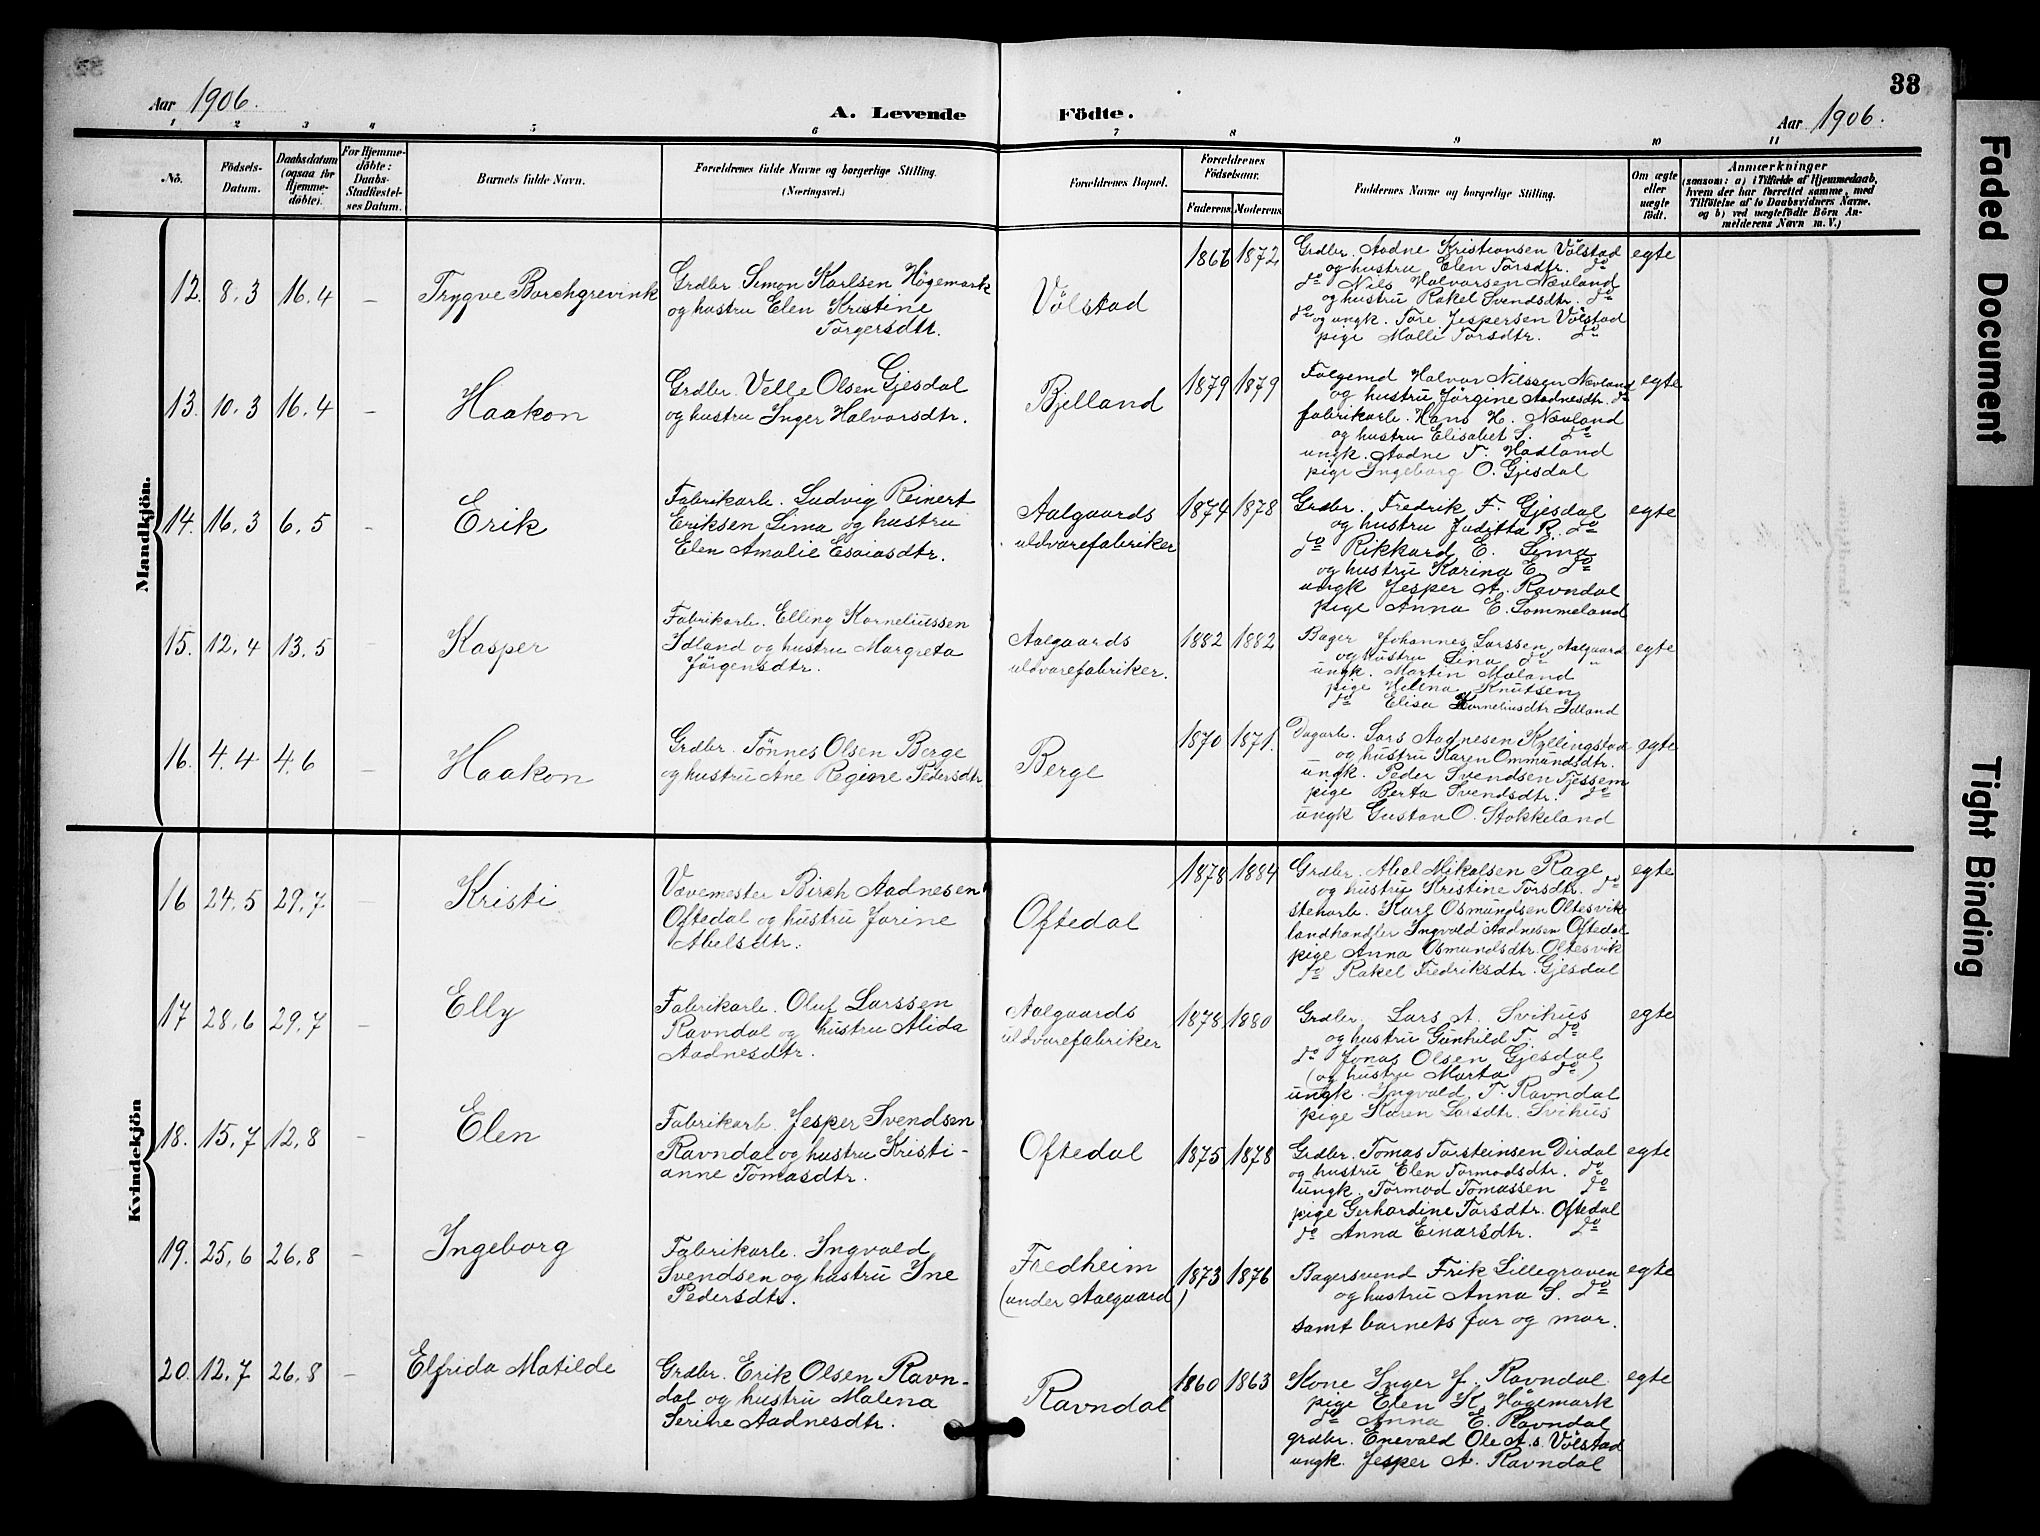 33
Aar 1906.
A. Levende Födte.
Aar 1906.
1 2 3 4 5 6 7 8 9 10 11
No.
Födsels-Datum.
Daabsdatum (ogsaa for Hjemme-döbte).
For Hjemme-döbte: Daabs-Stadfæstel-ses Datum.
Barnets fulde Navn.
Forældrenes fulde Navne og borgerlige Stilling.
(Næringsvei.)
Forældrenes Bopæl.
Forældrenes Födselsaar.
Faderens Moderens
Faddernes Navne og borgerlige Stilling.
Om ægte eller uægte födt.
Anmærkninger
(saasom: a) i Tilfælde af Hjemmedaab,
hvem der har forrettet samme, med
Tilföielse af to Daabsvidners Navne,
og b) ved uægtefödte Börn An-
melderens Navn m. V.)
Mandkjön.
12. 8.3 16.4 –
Trygve Borchgrevink
Grdbr. Simon Karlsen Högemark
og hustru Elen Kristine
Torgersdtr.
Völstad
1866 1872
Grdbr. Aadne Kristiansen Völstad
og hustru Elen Torsdtr. do
do Nils Halvorsen Nævland
og hustru Rakel Svendsdtr. do
do og ungk. Tore Jespersen Völstad
pige Malli Torsdtr. do
egte
13. 10.3 16.4 –
Haakon
Grdbr. Velle Olsen Gjesdal
og hustru Inger Halvorsdtr.
Bjelland
1879 1879
Følgemd Halvor Nilssen Nævland
og hustru Jörgine Aadnesdtr. do
fabrikarb. Hans H. Nævland
og hustru Elisabet S. do
ungk. Aadne T. Hadland
pige Ingeborg O. Gjesdal
egte
14. 16.3 6.5 –
Erik
Fabrikarb. Ludvig Reinert
Eriksen Lima og hustru
Elen Amalie Esaiasdtr.
Aalgaards
uldvarefabriker
1874 1878
Grdbr. Fredrik F. Gjesdal
og hustru Juditta R. do
do Rikkard E. Lima
og hustru Karina E. do
ungk Jesper A. Ravndal
pige Anna E. Sommeland
egte
15. 12.4 13.5
Kasper
Fabrikarb. Elling Korneliussen
Idland og hustru Margreta
Jörgensdtr.
Aalgaards
uldvarefabriker.
1882 1882
Bager Johannes Larssen, Aalgaard
og hustru Lina do "
ungk. Martin Mæland
pige Helena Knutsen
do Elisa Korneliusdtr Idland
egte
16. 4.4 4.6 –
Haakon
Grdbr. Tönnes Olsen Berge
og hustru Ane Regine Pedersdtr.
Berge
1870 1871.
Dagarb. Lars Aadnesen Kyllingstad
og hustru Karen Ommundsdtr.
ungk. Peder Svendsen Tjessem
pige Berta Svendsdtr. do
ungk Gustav O. Stokkeland
egte
Kvindekjön
16 24.5 29.7 –
Kristi
Vævemester Birch Aadnesen
Oftedal og hustru Jorine
Abelsdtr.
Oftedal
1878 1884
Grdbr. Abel Mikalsen Rage
og hustru Kristine Torsdtr. do
stenarb. Karl Osmundsen Oltesvik
landhandler Ingvald Aadnesen Oftedal
pige Anna Osmundsdtr. Oltesvik
do Rakel Fredriksdtr. Gjesdal
egte
17 28.6 29.7 –
Elly
Fabrikarb. Oluf Larssen
Ravndal og hustru Alida
Aadnesdtr.
Aalgaards
uldvarefabriker
1878 1880
Grdbr. Lars A. Svihus
og hustru Gunhild T. do
do Jonas Olsen Gjesdal
(og hustru Marta do)
ungk. Ingvald T. Ravndal
pige Karen Larsdtr. Svihus
egte
18. 15.7 12.8 –
Elen
Fabrikarb. Jesper Svendsen
Ravndal og hustru Kristi-
anne Tomasdtr.
Oftedal
1875 1878
Grdbr. Tomas Torsteinsen Dirdal
og hustru Elen Tormodsdtr. do
ungk. Tormod Tomassen do
pige Gerhardine Torsdtr. Oftedal
do Anna Einarsdtr. do
egte
19. 25.6 26.8 –
Ingeborg
Fabrikarb. Ingvald
Svendsen og hustru Ine
Pedersdtr.
Fredheim
(under Aalgaard)
1873 1876
Bagersvend Erik Lillegraven
og hustru Anna S. do
samt barnets far og mor.
egte
20. 12.7 26.8 –
Elfrida Matilde
Grdbr. Erik Olsen Ravn-
dal og hustru Malena
Serine Aadnesdtr.
Ravndal
1860 1863
Kone Inger J. Ravndal
pige Elen K. Högemark
do Anna E. Ravndal
grdbr. Enevald Ole A.s. Völstad
ungk. Jesper A. Ravndal
egte
Faded Document
Tight Binding